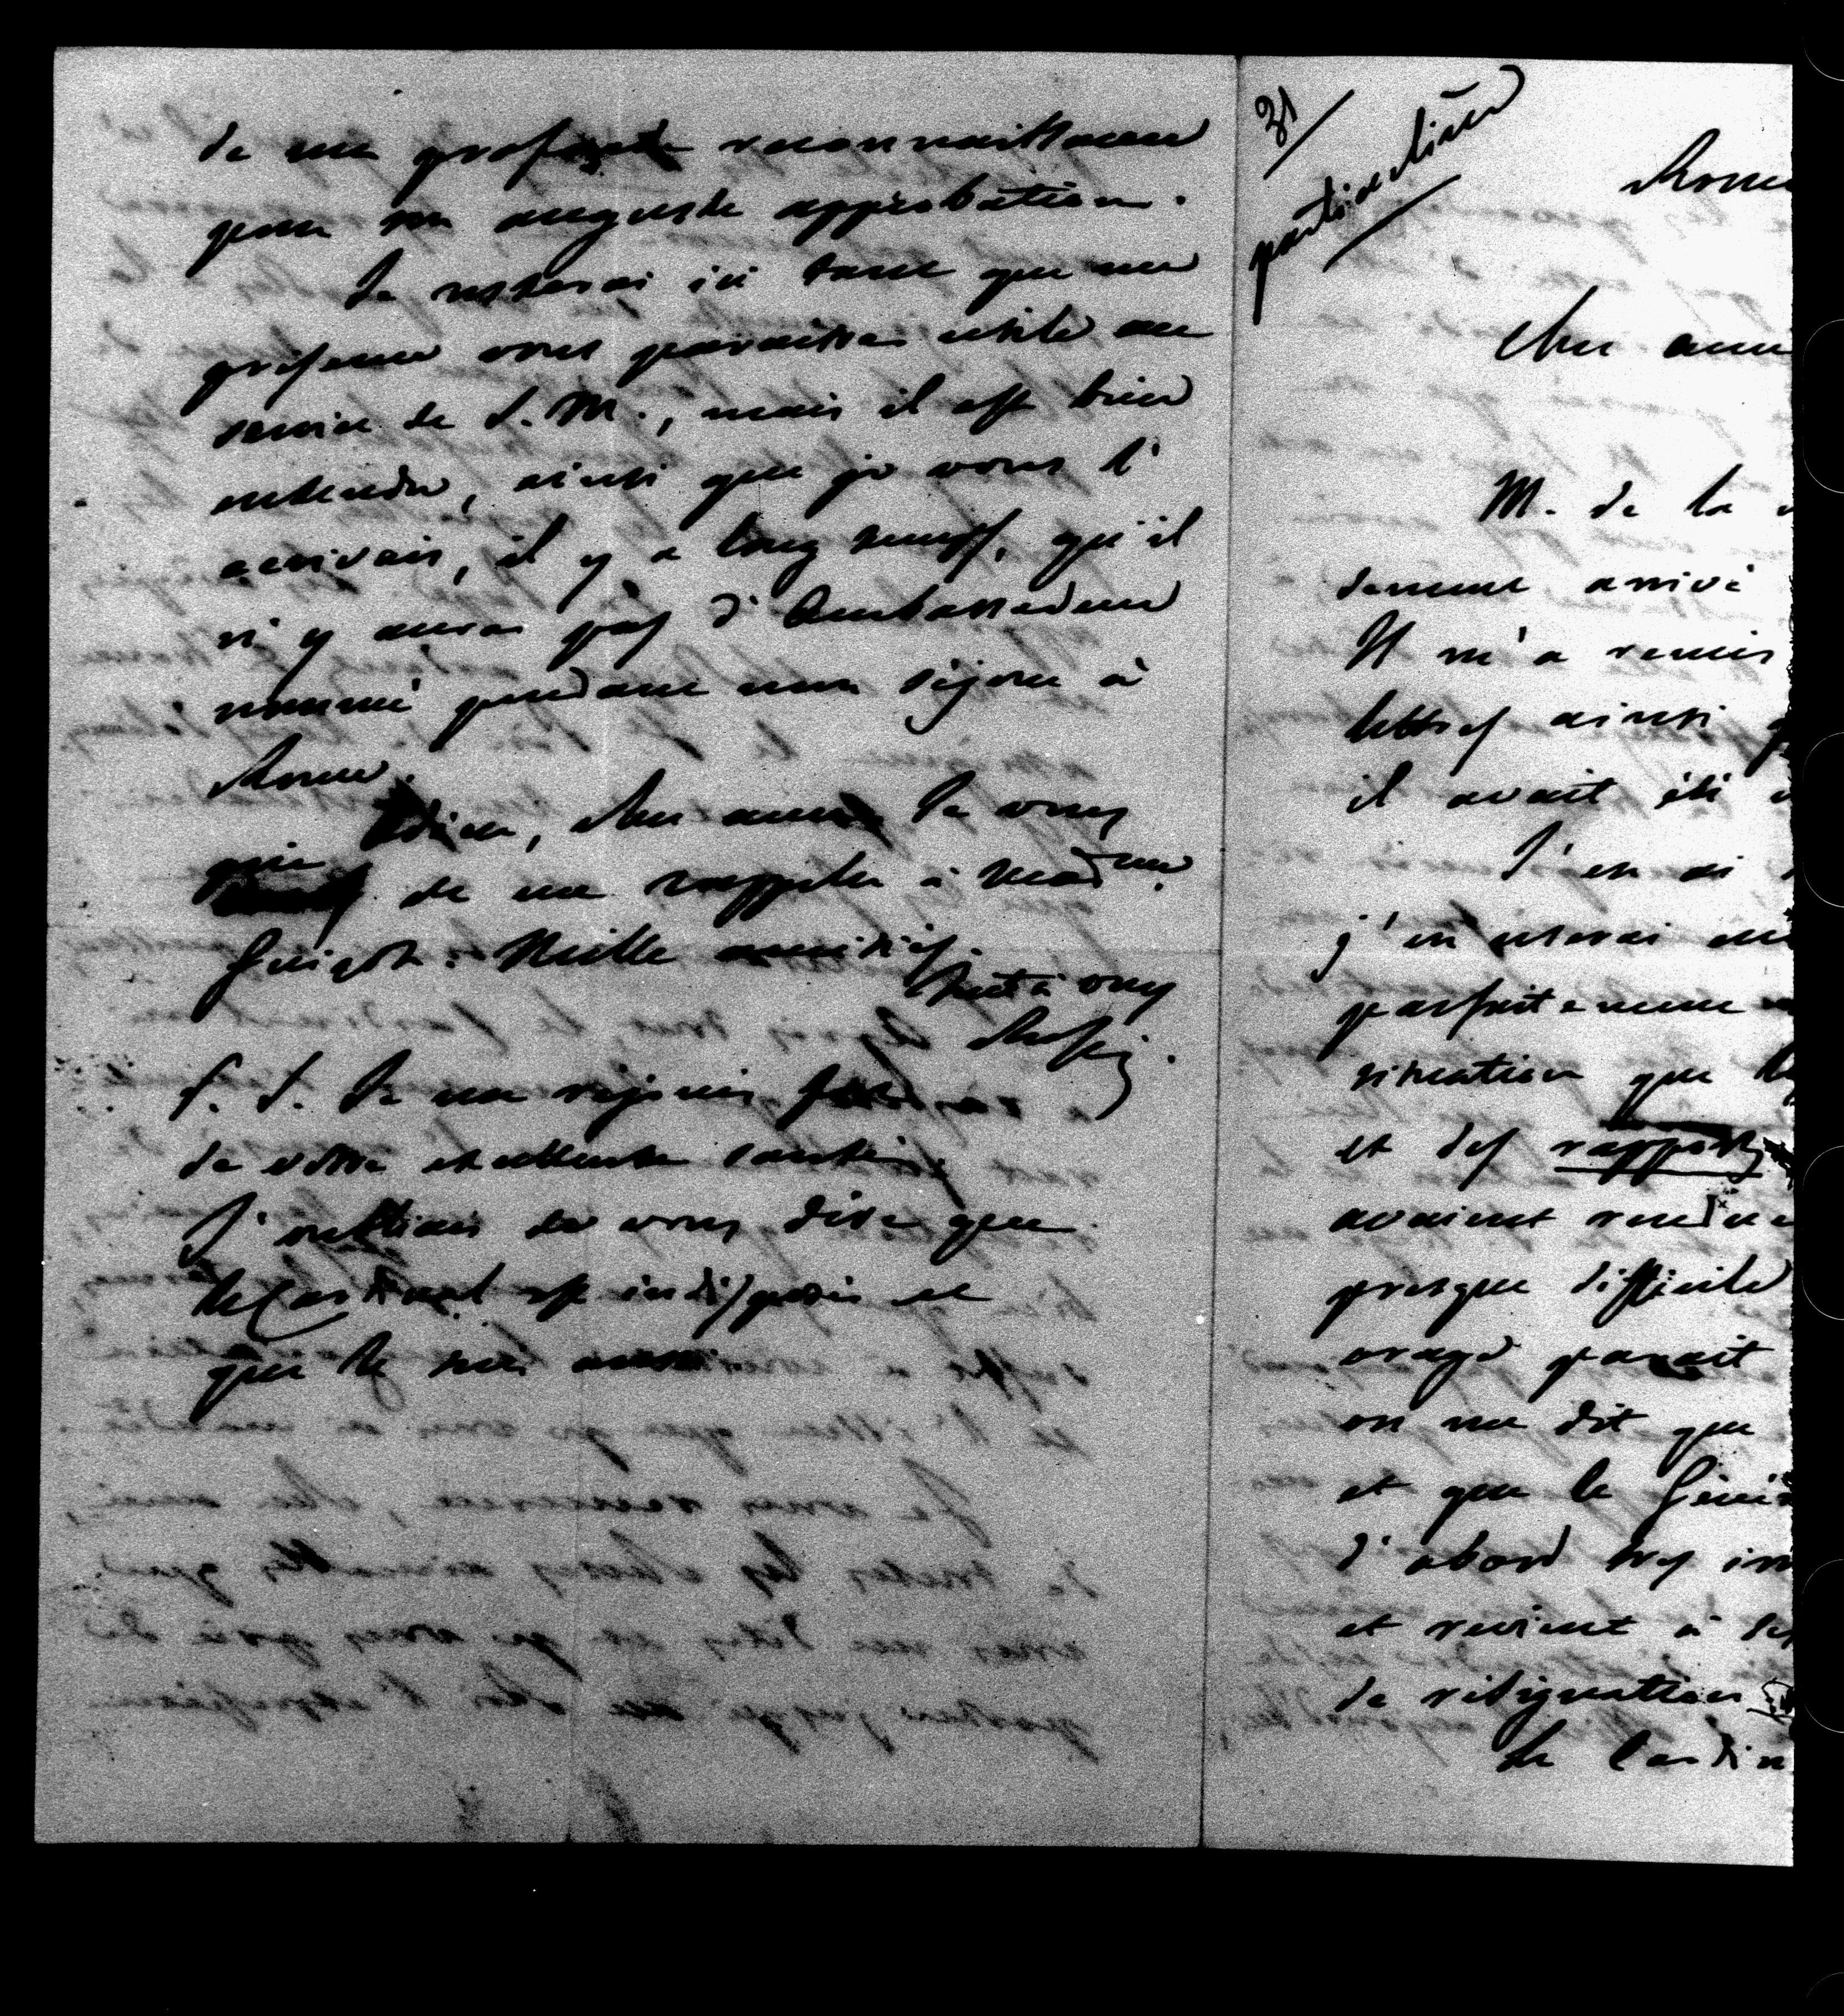 de ma profonde reconnaissance
pour son auguste approbation.
Je resterai ici tant que ma
présence vous paraitra utile au
service de S. M., mais il est bien
entendu, ainsi que je vous l'
écrivais, il y a long temps, qu'il
n'y aura pas d'Ambassadeur
nommé pendant mon séjour à
Rome.
Adieu, cher ami. Je vous
prie de me rappeler à Mad.me
Guizot. Mille amitiés.
Tout à vous
Rossi.
P. S. Je me réjouis fort
de votre excellente santé.
J'oubliais de vous dire que
le Cardinal est indisposé et
que je
31
particulière
Rome
Cher ami
M. de la
arrivé
Il m'a remis
lettres ainsi
il avait été
J'en ai
j'en userai
parfaitement
situation que
et des rapports
avaient rendue
presque difficile
orage parait
on me dit que
et que le
d'abord très
et revient à
de résignation
Le Cardin